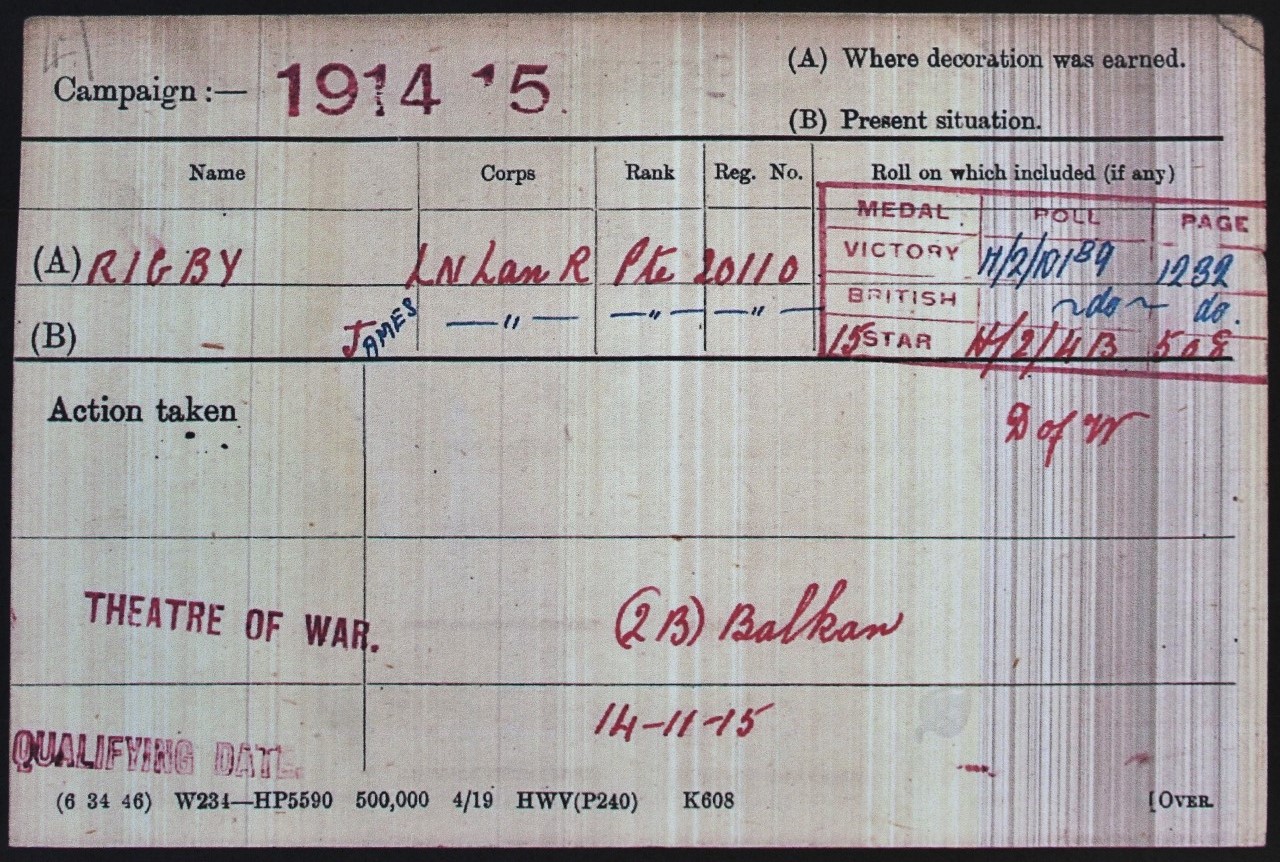 Campaign :— 1914 '15.
(A) Where decoration was earned.
(B) Present situation.
Name Corps Rank Reg. No. Roll on which included (if any)
MEDAL ROLL PAGE
(A) RIGBY LN Lan R Pte 20110
VICTORY H/2/101B9 1232
BRITISH ~do~ do.
(B) JAMES —"— —"— —"—
15 STAR H/2/4B 508
Action taken
D of W
THEATRE OF WAR. (2B) Balkan
QUALIFYING DATE. 14-11-15
(6 34 46) W234—HP5590 500,000 4/19 HWV(P240) K608 [OVER.